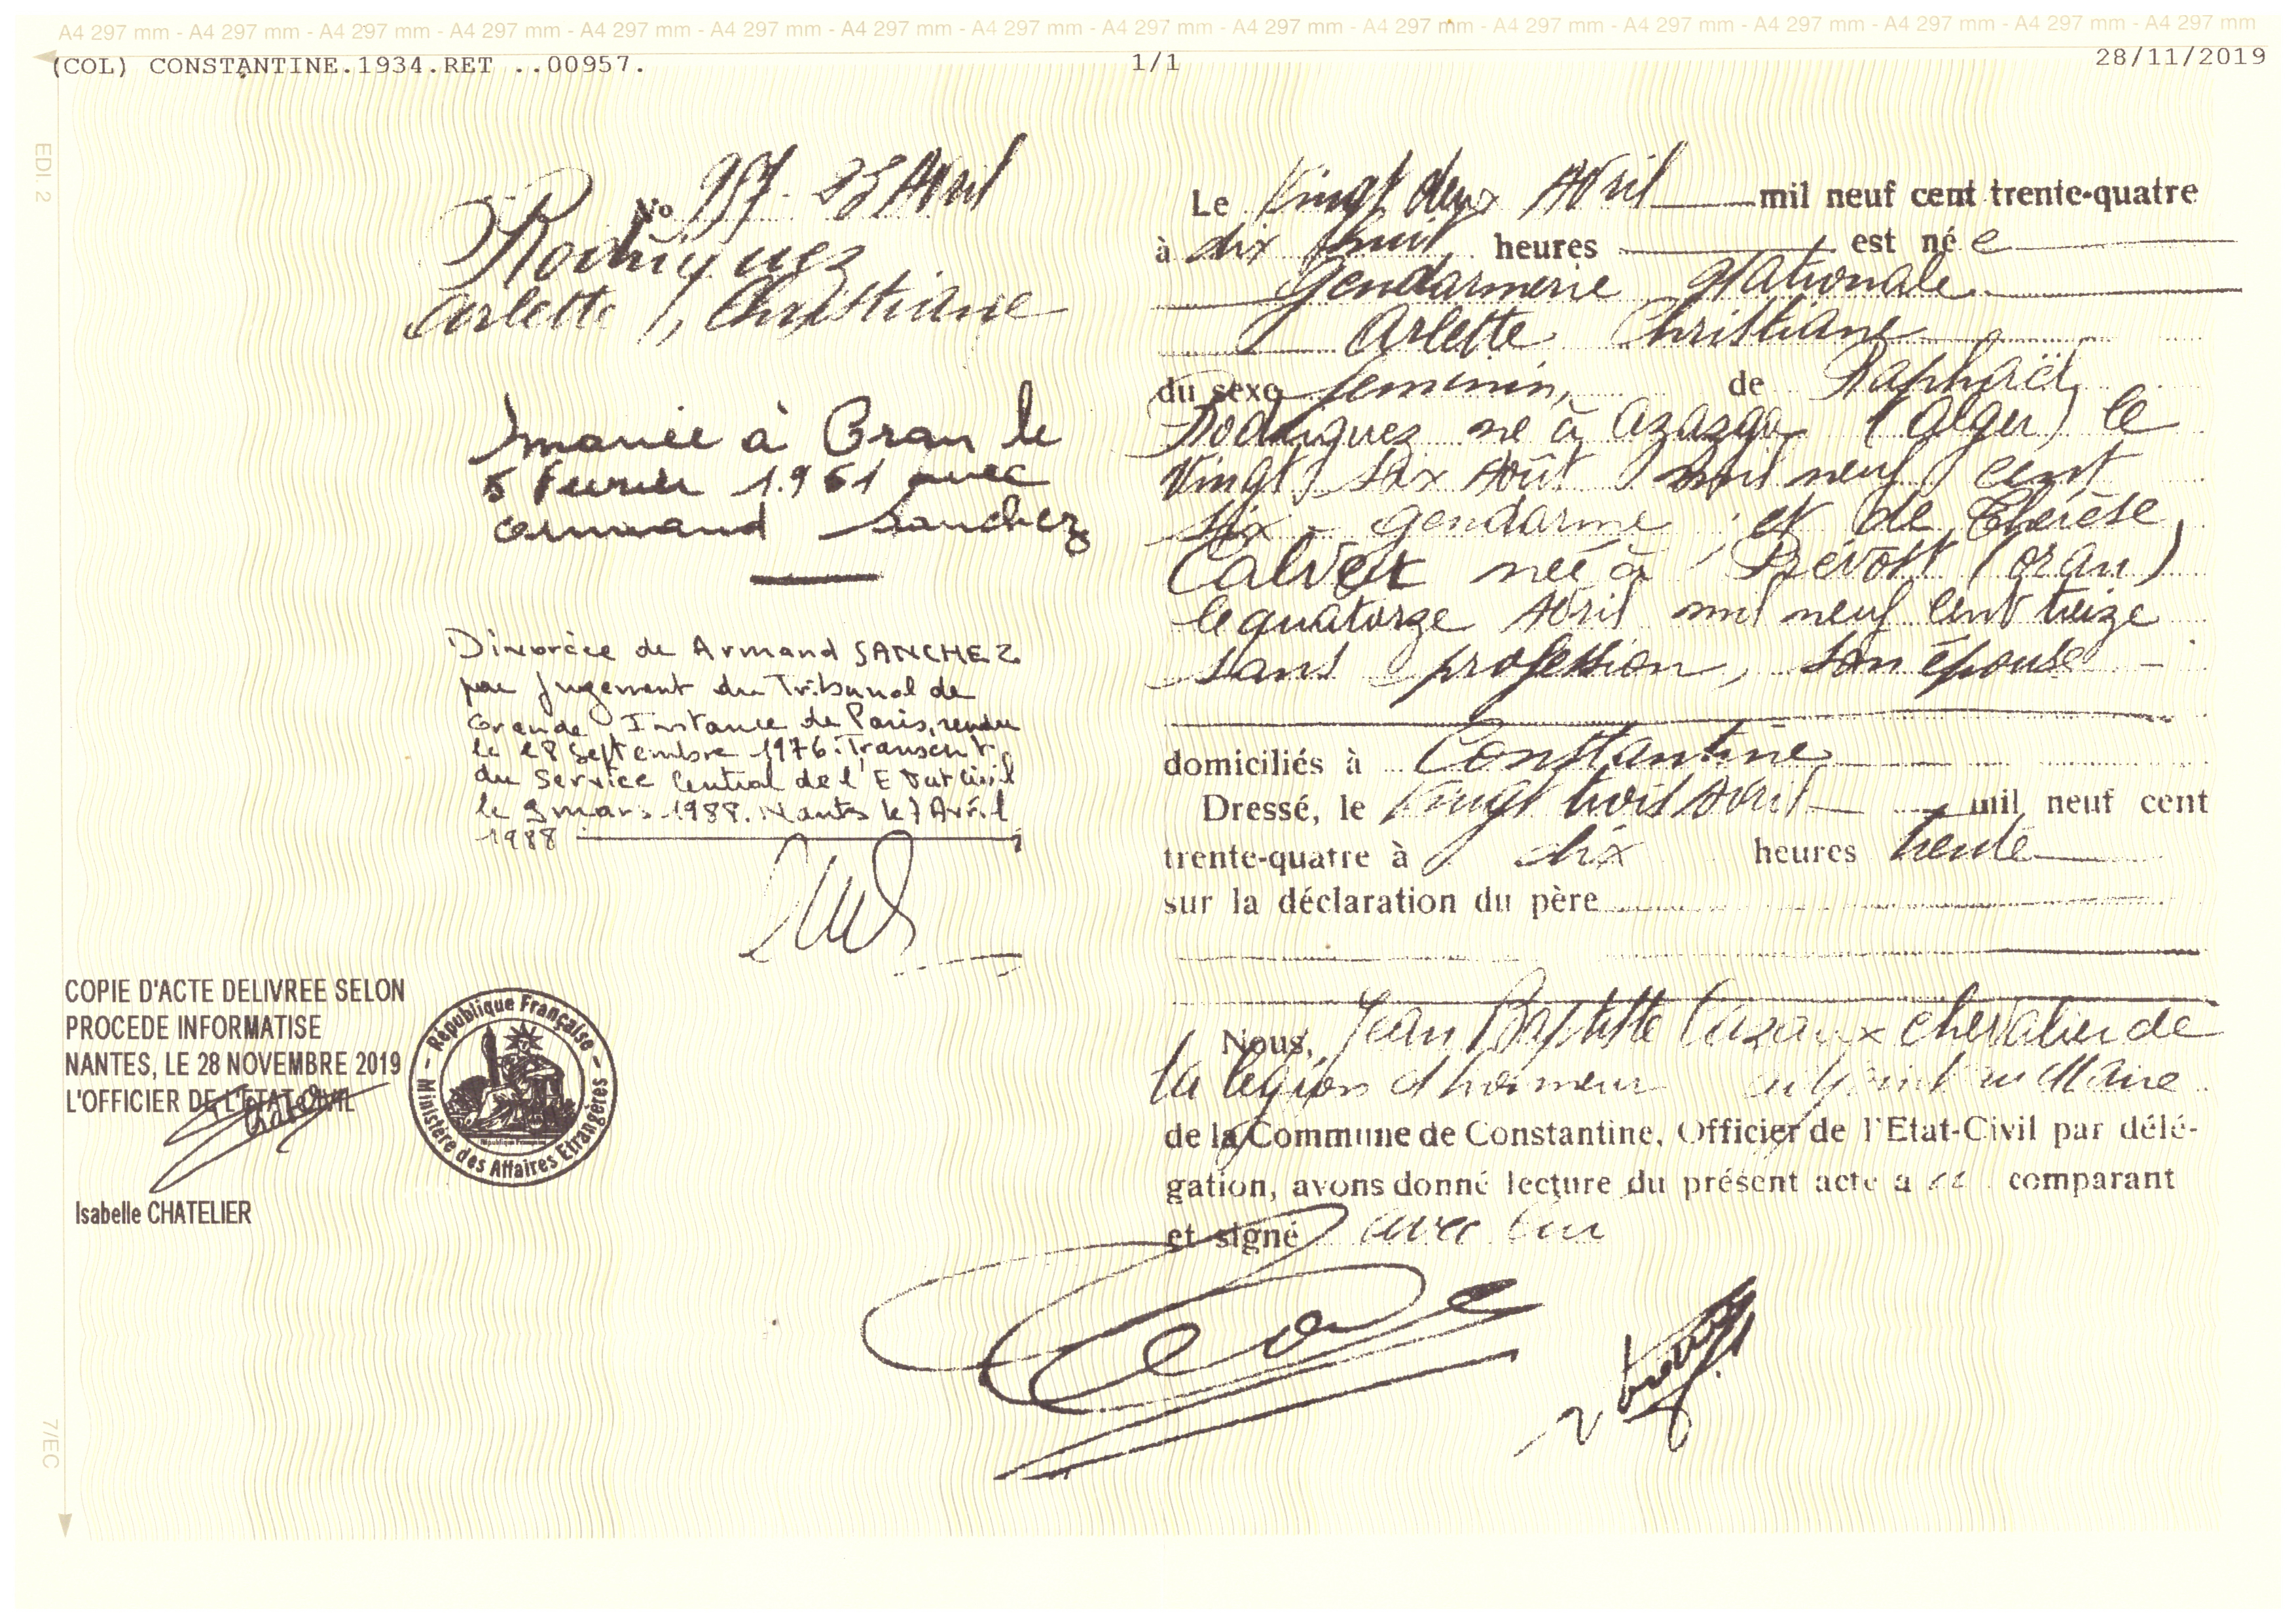 A4 297 mm - A4 297 mm - A4 297 mm - A4 297 mm - A4 297 mm - A4 297 mm - A4 297 mm - A4 297 mm - A4 297 mm - A4 297 mm - A4 297 mm - A4 297 mm - A4 297 mm - A4 297 mm - A4 297 mm - A4 297 mm - A4 297 mm
(COL) CONSTANTINE.1934.RET ..00957.
1/1
28/11/2019
EDI. 2
No 957 - 23 Avril
Rodriguez
Arlette, Christiane
mariée à Oran le
5 Février 1.961 avec
Armand Sanchez
Divorcée de Armand SANCHEZ
par jugement du Tribunal de
Grande Instance de Paris, rendu
le 28 Septembre 1976. Transcrit
du Service Central de l'Etat Civil
le 3 mars 1988. Nantes le 7 Avril
1988
COPIE D'ACTE DELIVREE SELON
PROCEDE INFORMATISE
NANTES, LE 28 NOVEMBRE 2019
L'OFFICIER DE L'ETAT CIVIL
Isabelle CHATELIER
République Française
Ministère des Affaires Etrangères
7/EC
Le Vingt deux Avril mil neuf cent trente-quatre
à dix huit heures est née
Gendarmerie Nationale
Arlette Christiane
du sexe féminin, de Raphaël
Rodriguez né à Azazga (Alger) le
Vingt six Août mil neuf cent
six - gendarme ; et de Thérèse
Calvet née à Prévost (Oran)
le quatorze Avril mil neuf cent treize
sans profession, son épouse -
domiciliés à Constantine
Dressé, le Vingt trois Avril mil neuf cent
trente-quatre à dix heures trente
sur la déclaration du père
Nous, Jean Baptiste Cazaux chevalier de
la légion d'honneur adjoint au Maire
de la Commune de Constantine, Officier de l'Etat-Civil par délé-
gation, avons donné lecture du présent acte a comparant
et signé avec lui